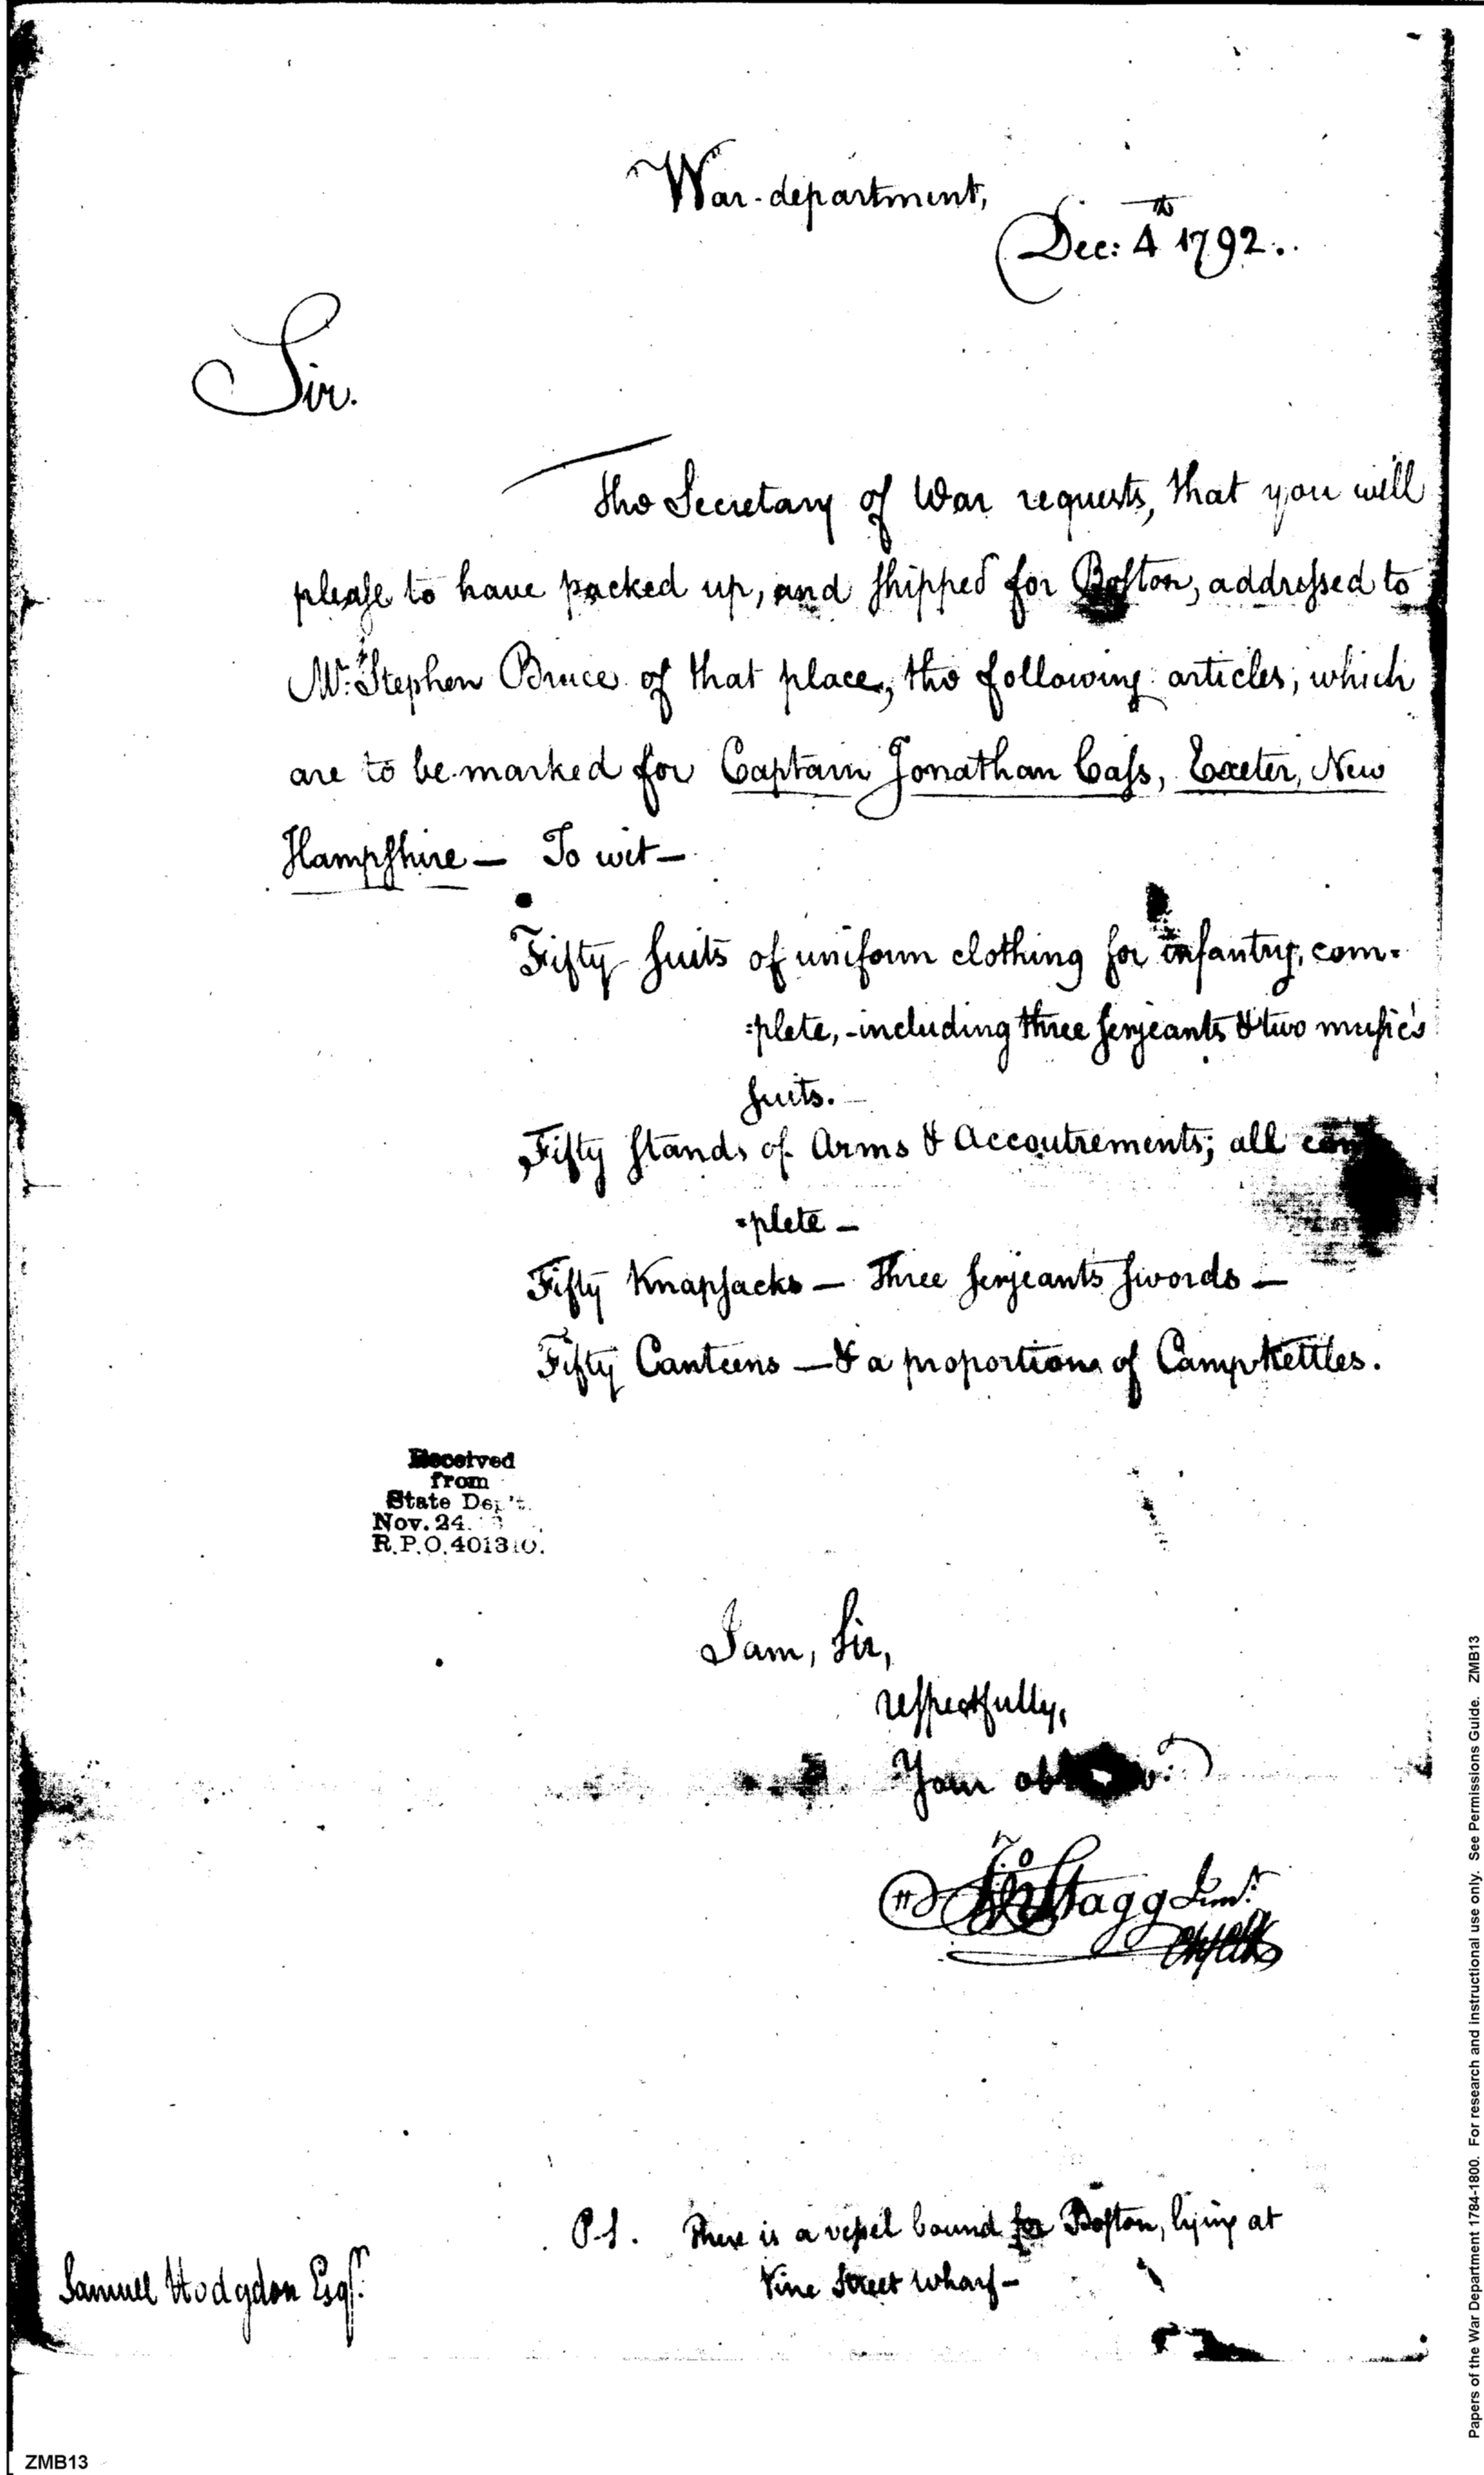 War-department,
Dec: 4th 1792..
Sir.
The Secretary of War requests, that you will
please to have packed up, and shipped for Boston, addressed to
Mr. Stephen Bruce of that place, the following articles, which
are to be marked for Captain Jonathan Cass, Exeter, New
Hampshire — To wit —
Fifty suits of uniform clothing for infantry, com-
=plete, -including three serjeants & two music's
suits. —
Fifty stands of Arms & Accoutrements; all com
=plete —
Fifty Knapsacks — Three serjeants swords —
Fifty Canteens — & a proportion of Camp Kettles.
Received
from
State Dep't.
Nov. 24.
R.P.O. 401310.
I am, Sir,
respectfully,
Your
Jno Stagg Junr.
Chf Clk
P.S. There is a vessel bound for Boston, lying at
Vine Street wharf —
Samuel Hodgdon Esqr.
Papers of the War Department 1784-1800. For research and instructional use only. See Permissions Guide. ZMB13
ZMB13